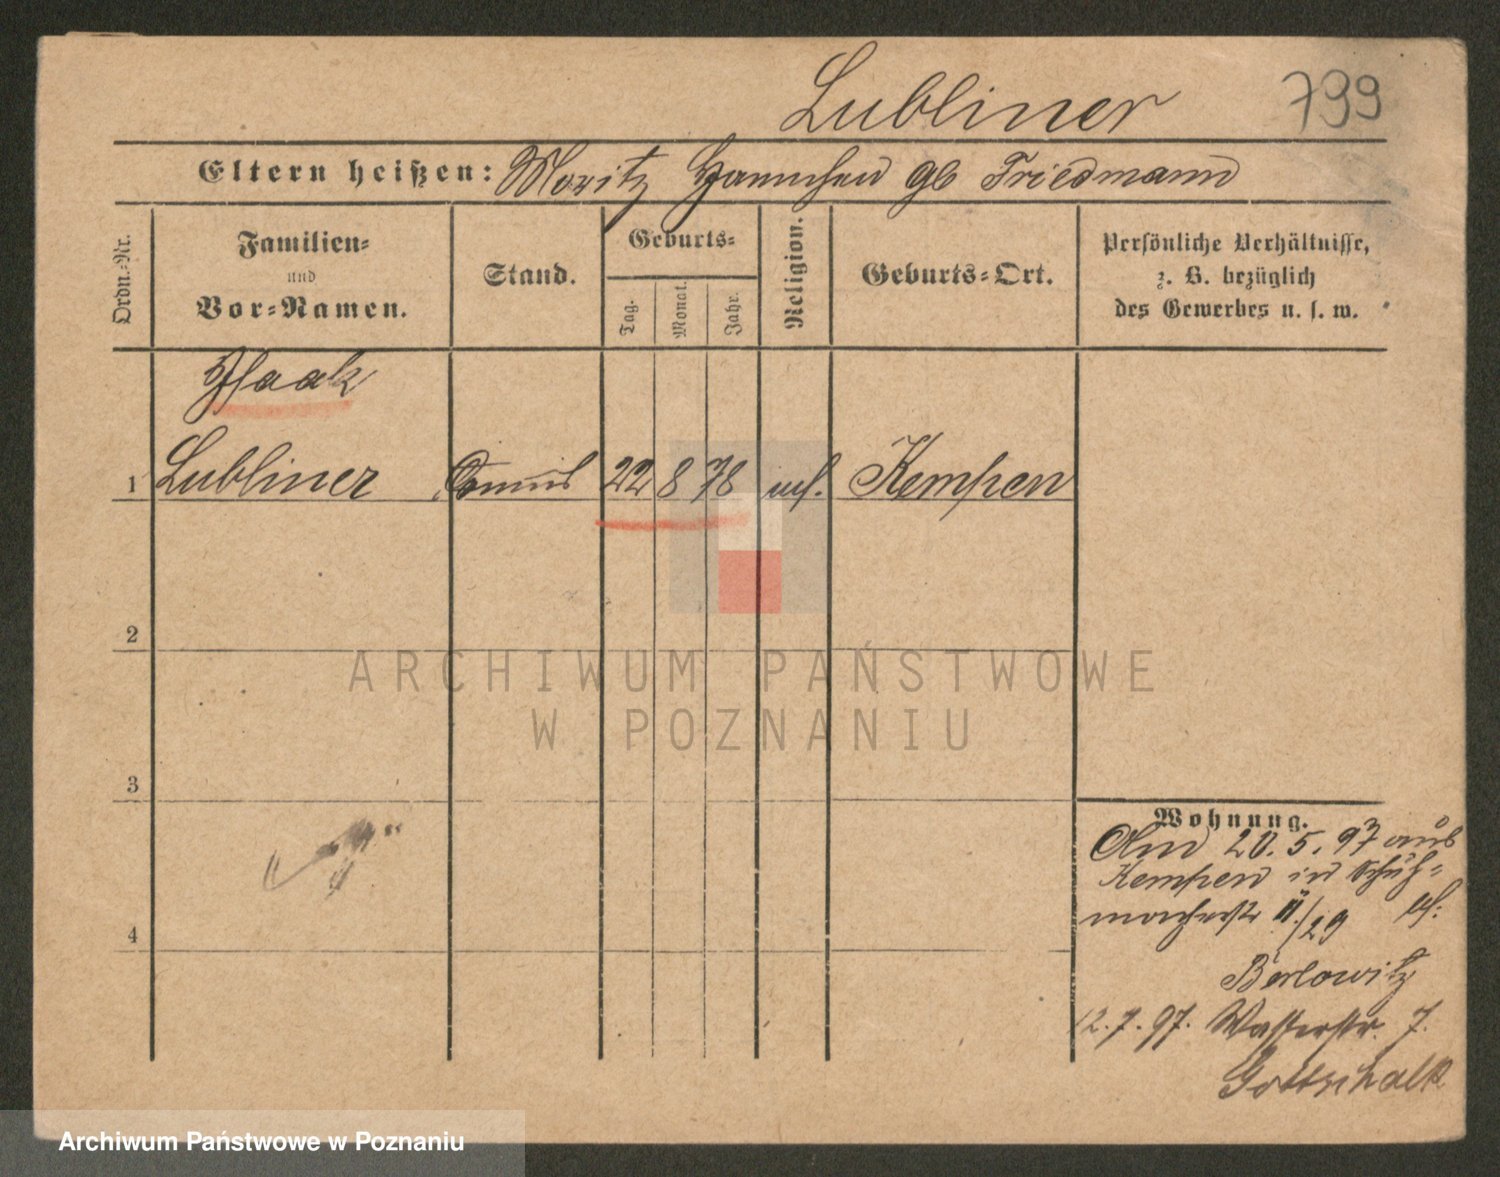 Lubliner 799
Eltern heißen: Moritz Hannchen gb Friedmann
Ordn.=Nr.
Familien=
und
Vor=Namen.
Stand.
Geburts=
Tag.
Monat.
Jahr.
Religion.
Geburts=Ort.
Persönliche Verhältnisse,
z. B. bezüglich
des Gewerbes u. s. w.
Isaak
1 Lubliner Commis 22 8 78 mos. Kempen
2
3
4
Wohnung.
20. 5. 97 aus
Kempen in Schuh=
macherstr 11/29 bf:
Berlowitz
12. 7. 97. Wasserstr. 7.
Gottschalk
ARCHIWUM PAŃSTWOWE
W POZNANIU
Archiwum Państwowe w Poznaniu